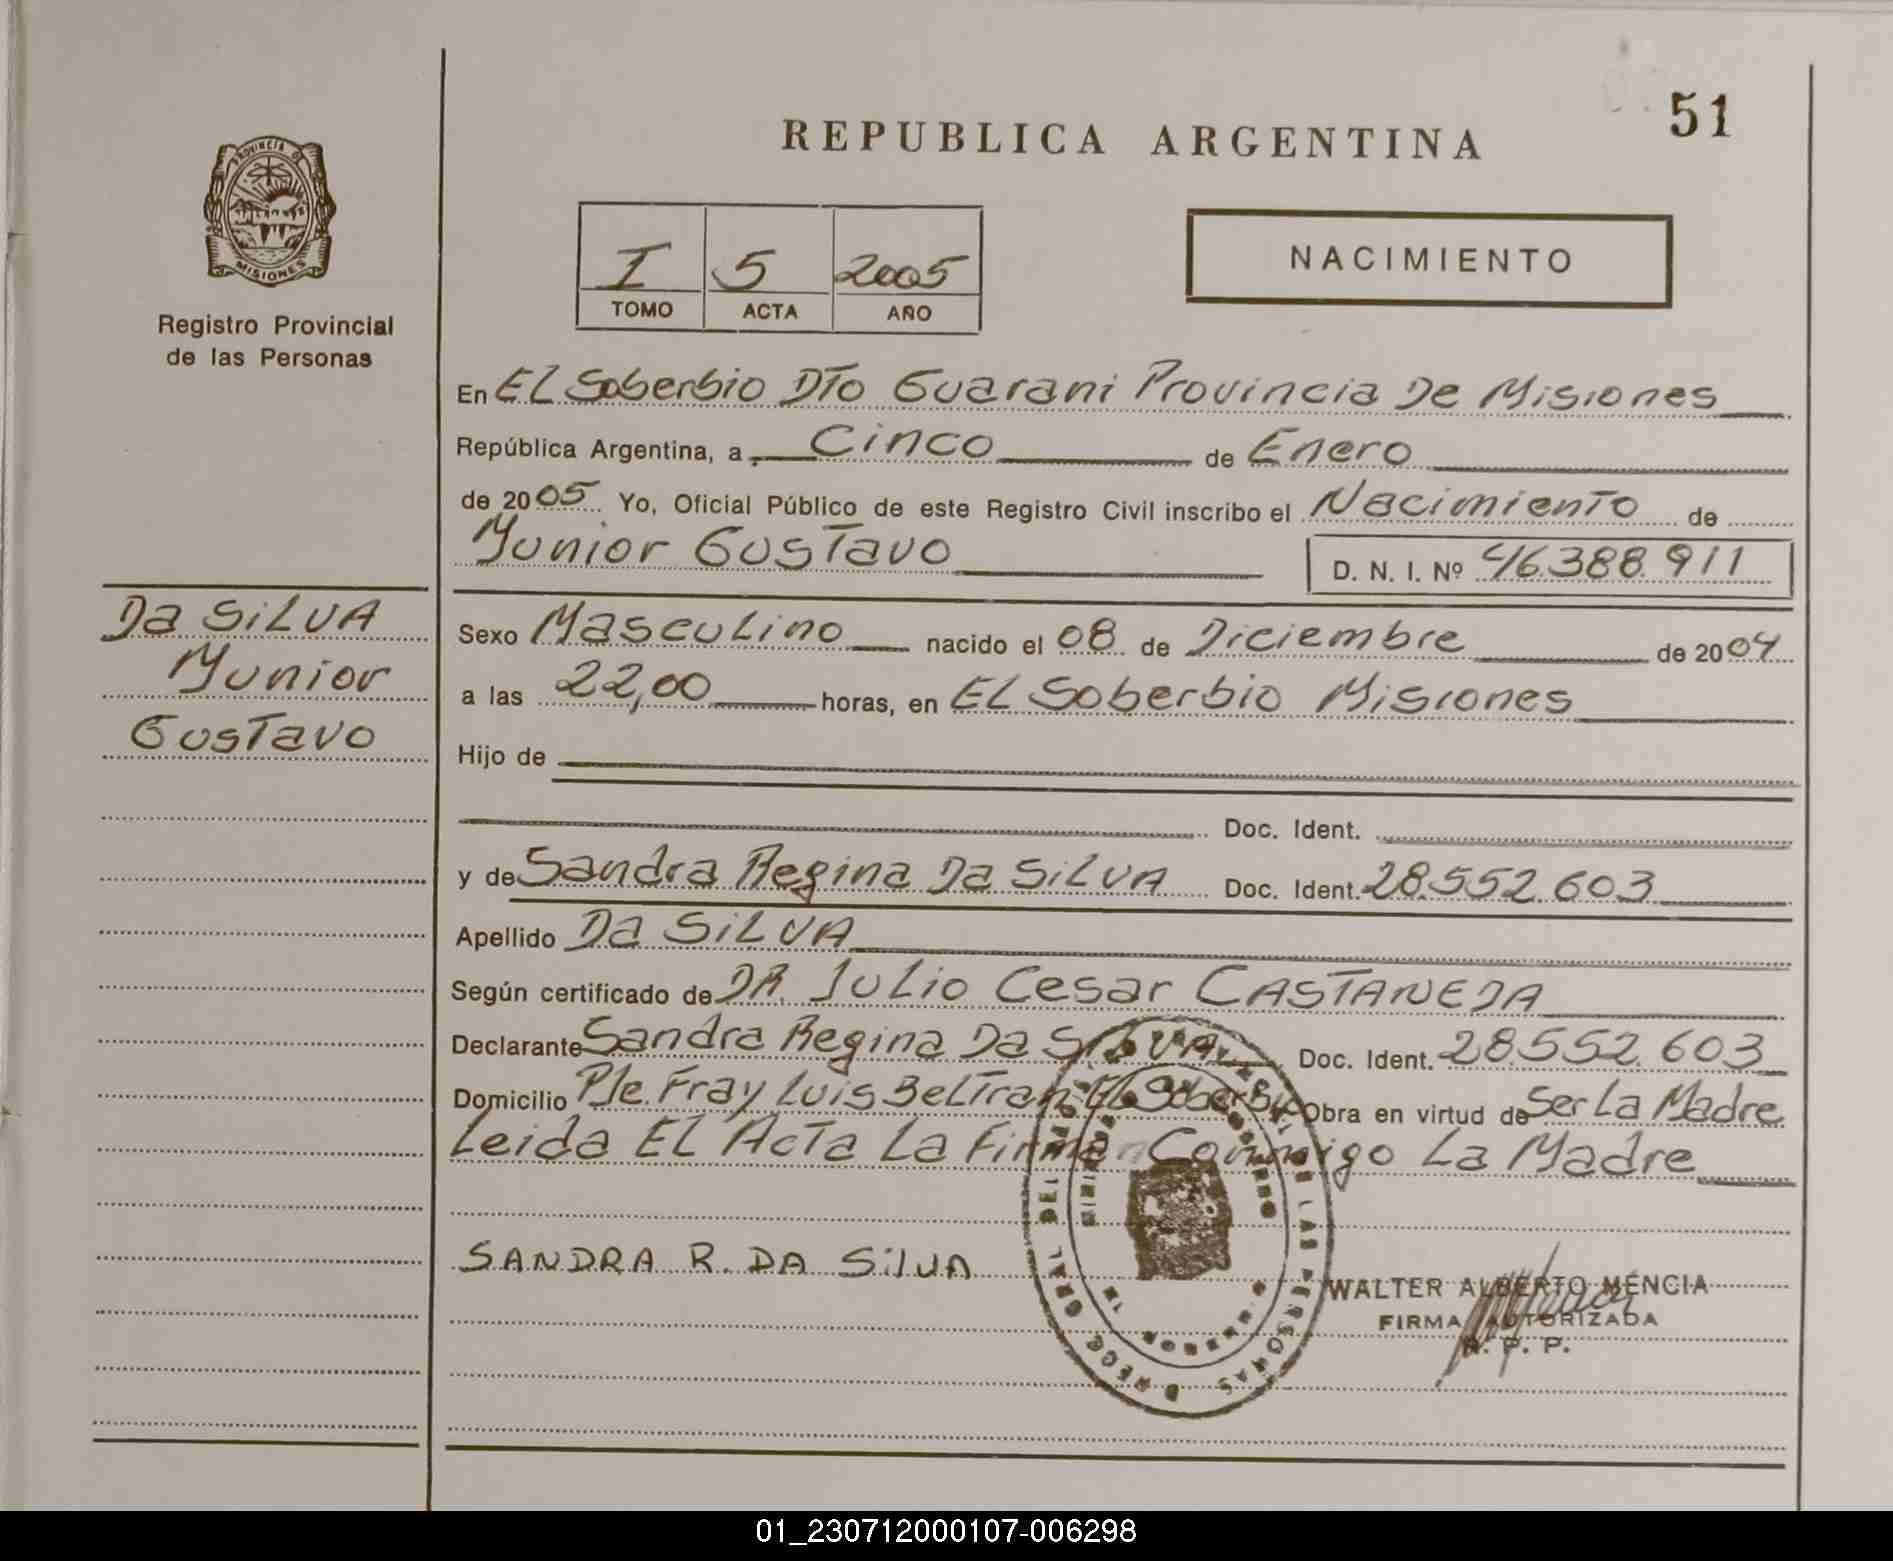 51
REPUBLICA ARGENTINA
PROVINCIA DE
MISIONES
Registro Provincial
de las Personas
I 5 2005
TOMO ACTA AÑO
NACIMIENTO
En EL Soberbio DTo Guarani Provincia De Misiones
República Argentina, a Cinco de Enero
de 2005 Yo, Oficial Público de este Registro Civil inscribo el Nacimiento de
Yunior Gustavo D. N. I. Nº 46.388.911
Da SiLVA
Yunior
Gustavo
Sexo Masculino nacido el 08 de Diciembre de 2004
a las 22,00 horas, en EL Soberbio Misiones
Hijo de
Doc. Ident.
y de Sandra Regina Da SiLVA Doc. Ident. 28.552.603
Apellido Da SiLVA
Según certificado de DR. Julio Cesar CASTANEDA
Declarante Sandra Regina Da SiLVA Doc. Ident. 28552.603
Domicilio Pje. Fray Luis BeLTran EL Soberbio Obra en virtud de Ser La Madre
Leida EL Acta La Firman Conmigo La Madre
SANDRA R. DA SilVA
WALTER ALBERTO MENCIA
FIRMA AUTORIZADA
R. P. P.
GRAL DEL DE LAS PERSONAS
01_230712000107-006298